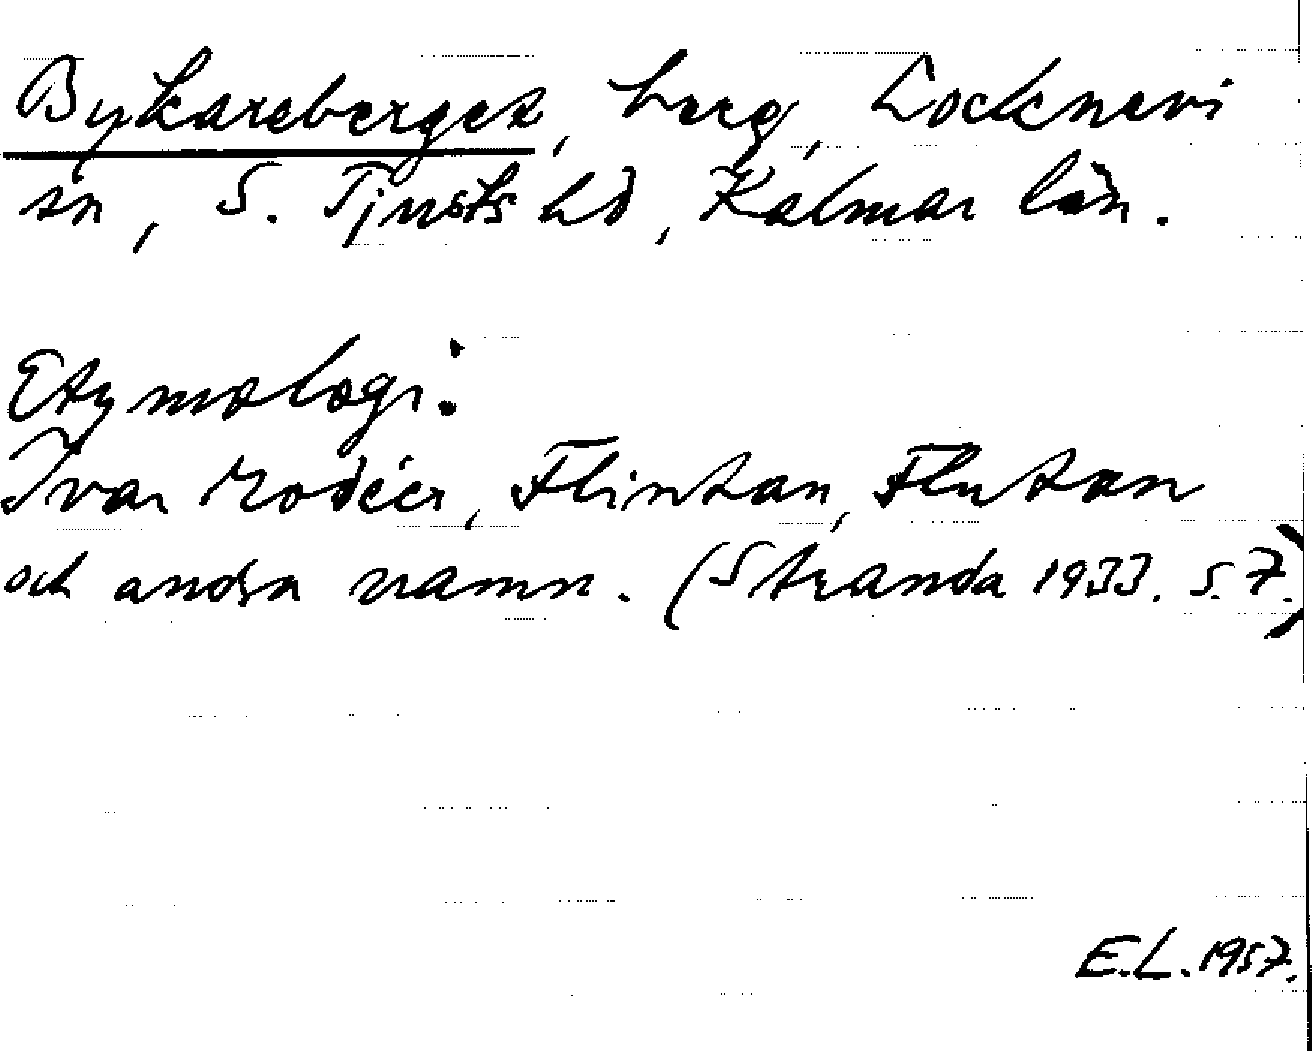 Bykareberget, berg, Locknevi
sn, S. Tjusts hd, Kalmar län.
Etymologi:
Ivar Modéer, Flintan, Flutan
och andra namn. (Stranda 1933. S. 7.)
E.L. 1957.